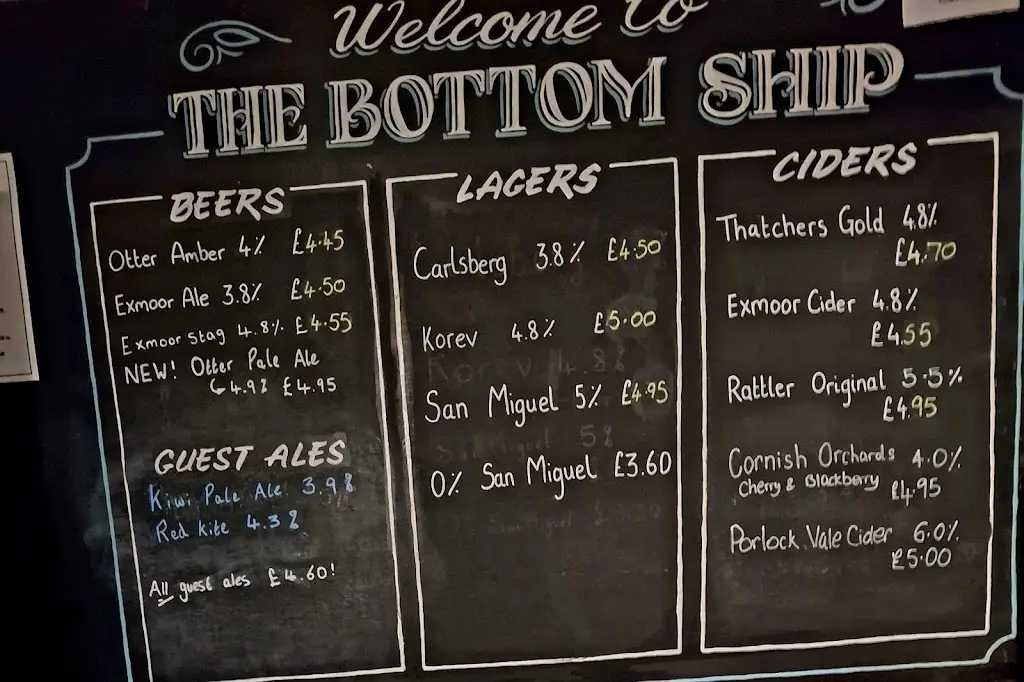 Welcome to
THE BOTTOM SHIP
BEERS
Otter Amber 4% £4.45
Exmoor Ale 3.8% £4.50
Exmoor Stag 4.8% £4.55
NEW! Otter Pale Ale
4.9% £4.95
GUEST ALES
Kiwi Pale Ale 3.9%
Red kite 4.3%
All guest ales £4.60!
LAGERS
Carlsberg 3.8% £4.50
Korev 4.8% £5.00
San Miguel 5% £4.95
0% San Miguel £3.60
CIDERS
Thatchers Gold 4.8%
£4.70
Exmoor Cider 4.8%
£4.55
Rattler Original 5.5%
£4.95
Cornish Orchards 4.0%
Cherry & Blackberry £4.95
Porlock Vale Cider 6.0%
£5.00